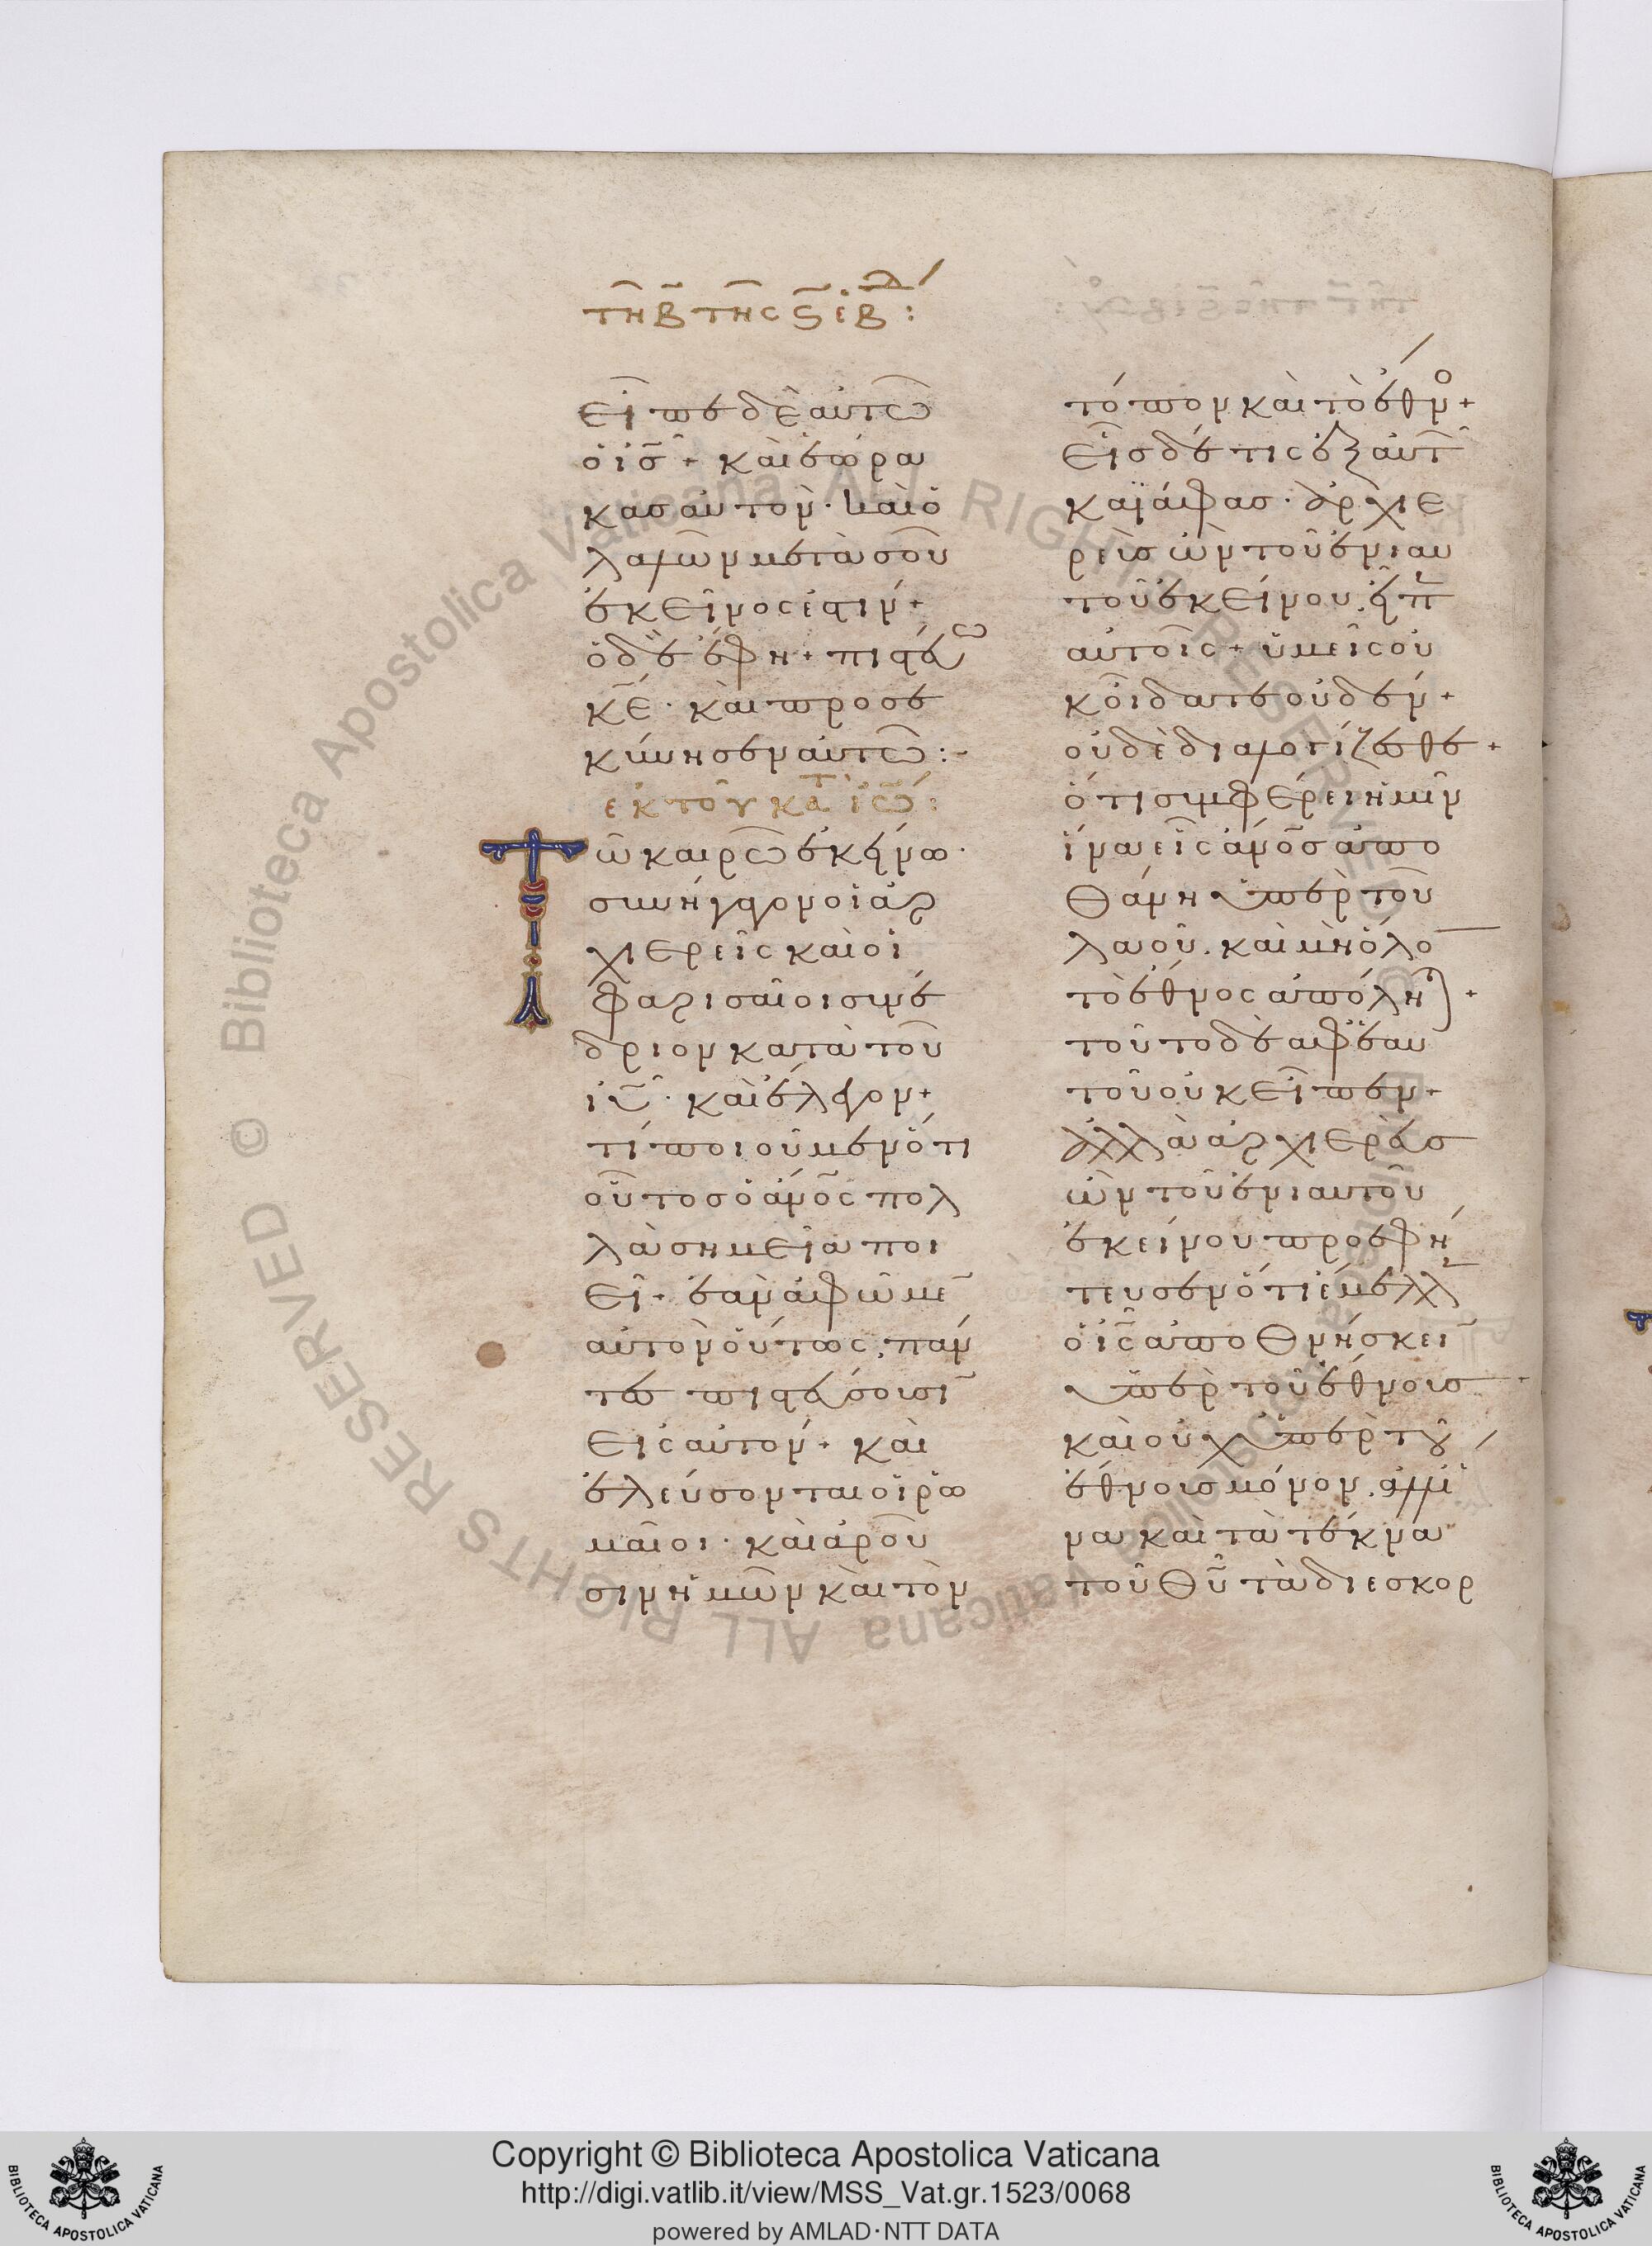 τῆ β̄ τῆς ϛ̄ ἑβδ:
εἶπε δὲ αὐτῶ
ὁ ισ̅ + καὶ ἑώρα
κας αὐτὸν · καὶ ὁ
λαλῶν μετὰ σοῦ
ἐκεῖνος ἐστίν +
ὁ δὲ ἔφη + πιστεύω
κ̅ε̅ · καὶ προσε
κύνησεν αὐτῶ :-
ἐκ τοῦ κατὰ ἰω̅:
Τῶ καιρῶ ἐκείνω ·
συνήχθησαν οἱ ἀρ
χιερεῖς καὶ οἱ
φαρισαῖοι συνέ
δριον κατὰ τοῦ
ι̅υ̅ · καὶ ἔλεγον +
τί ποιοῦμεν ὅτι
οὗτος ὁ α̅νο̅ς πολ
λὰ σημεῖα ποι
εῖ + ἐὰν ἀφῶμε̅
αὐτὸν οὕτως, πάν
τες πιστεύσουσι̅
εἰς αὐτόν + καὶ
ἐλεύσονται οἱ ρω
μαῖοι · καὶ ἀροῦ
σιν ἡμῶν καὶ τὸν
τόπον καὶ τὸ ἔθνο +
Εἷς δέ τις ἐξ αὐτ
καϊάφας · ἀρχιε
ρεὺς ὢν τοῦ ἐνιαυ
τοῦ ἐκείνου, εἶπ
αὐτοῖς + ὑμεῖς οὐ
κ οἴδατε οὐδέν +
οὐδὲ διαλογίζεσθε +
ὅτι συμφέρει ἡμῖν
ἵνα εἷς α̅νο̅ς ἀπο
θάνη ὑπὲρ τοῦ
λαοῦ. καὶ μὴ ὅλο̅
τὸ ἔθνος ἀπόλη +
τοῦτο δὲ ἀφ' ἑαυ
τοῦ οὐκ εἶπεν +
ἀλλὰ ἀρχιερεὺς
ὢν τοῦ ἐνιαυτοῦ
ἐκείνου προεφή
τευσεν ὅτι ἔμελλ
ὁ ι̅ς̅ ἀποθνήσκει̅
ὑπὲρ τοῦ ἔθνους ·
καὶ οὐχ ὑπὲρ τοῦ
ἔθνους μόνον. ἀλλ' ἵ
να καὶ τὰ τέκνα
τοῦ θ̅υ̅ τὰ διεσκορ
© Biblioteca Apostolica Vaticana ALL RIGHTS RESERVED
Copyright © Biblioteca Apostolica Vaticana
http://digi.vatlib.it/view/MSS_Vat.gr.1523/0068
powered by AMLAD·NTT DATA
BIBLIOTECA APOSTOLICA VATICANA
BIBLIOTECA APOSTOLICA VATICANA